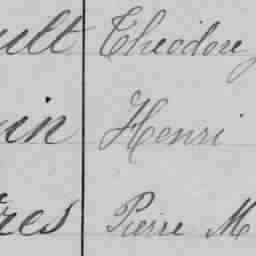 ult Théodore
in Henri
res Pierre M